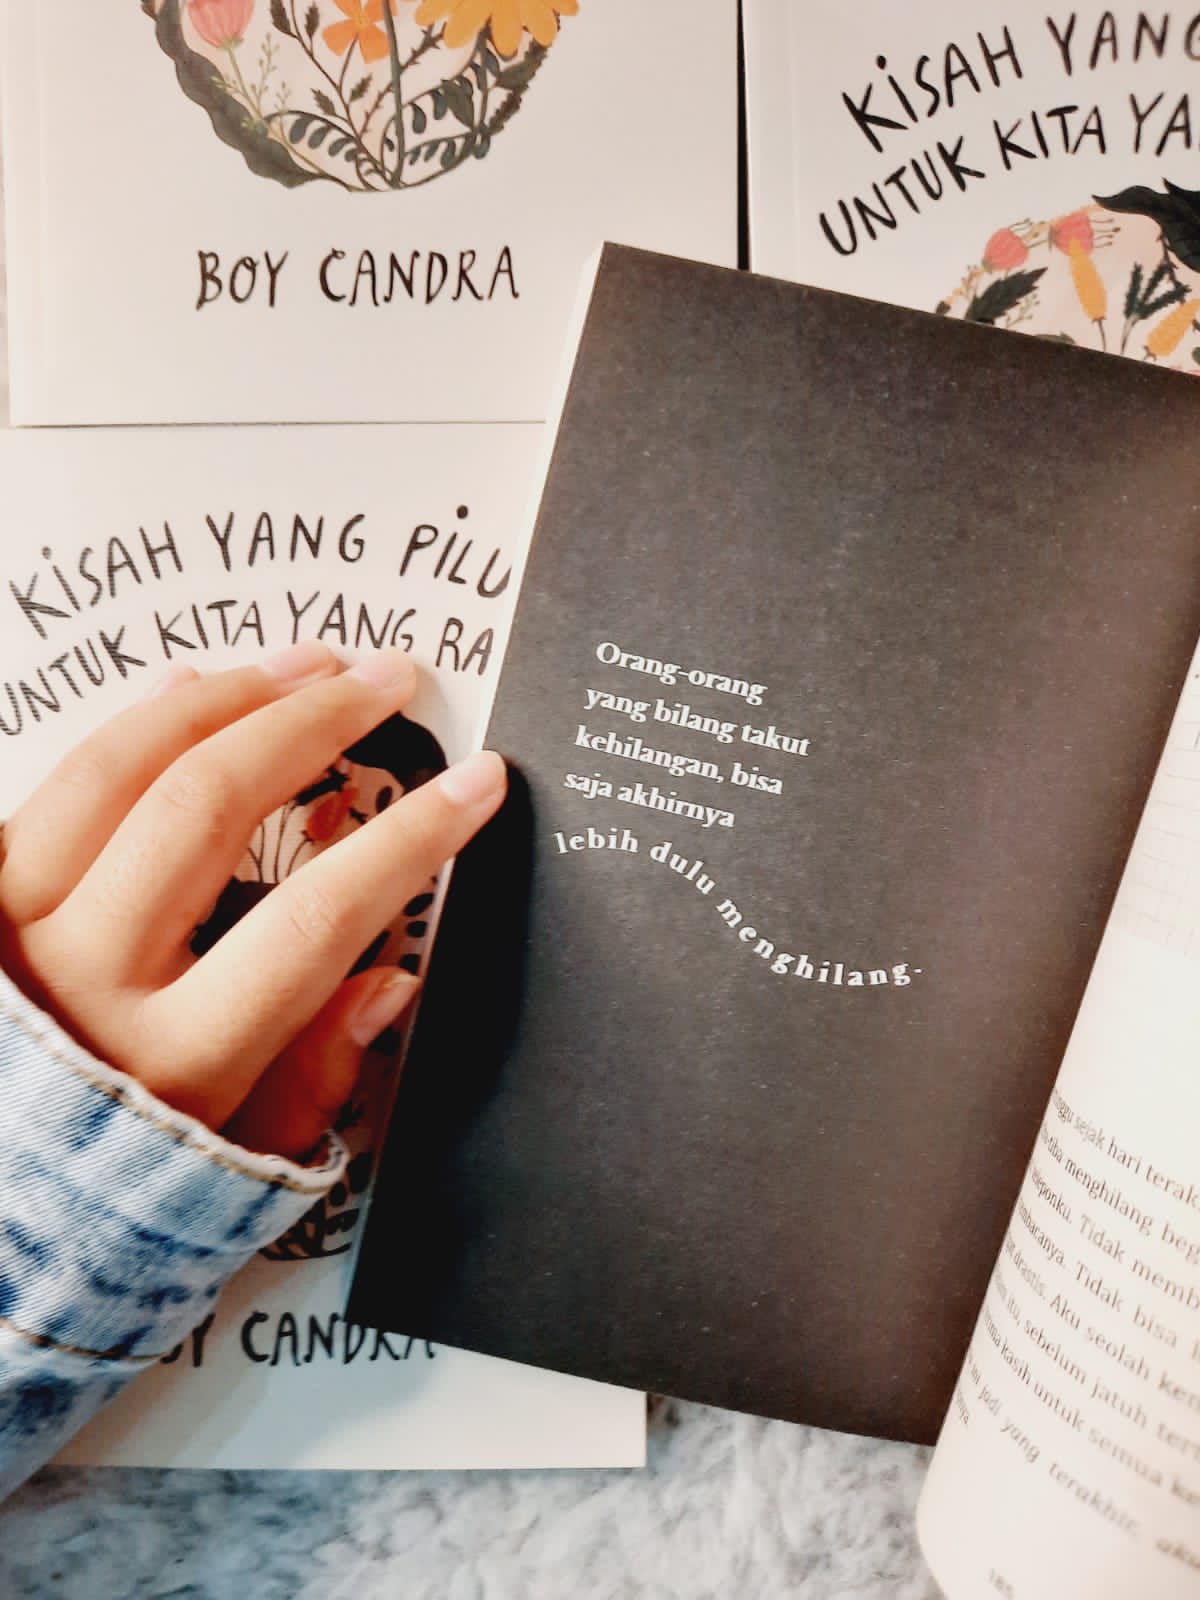 BOY CANDRA
KISAH YANG
UNTUK KITA YA
KISAH YANG PILU
UNTUK KITA YANG RA
CANDRA
Orang-orang
yang bilang takut
kehilangan, bisa
saja akhirnya
lebih dulu menghilang.
sejak hari
menghilang
teleponku. Tidak
Tidak bisa
drastis. Aku seolah
itu, sebelum jatuh
kasih untuk semua
ini jadi yang terakhir,
185